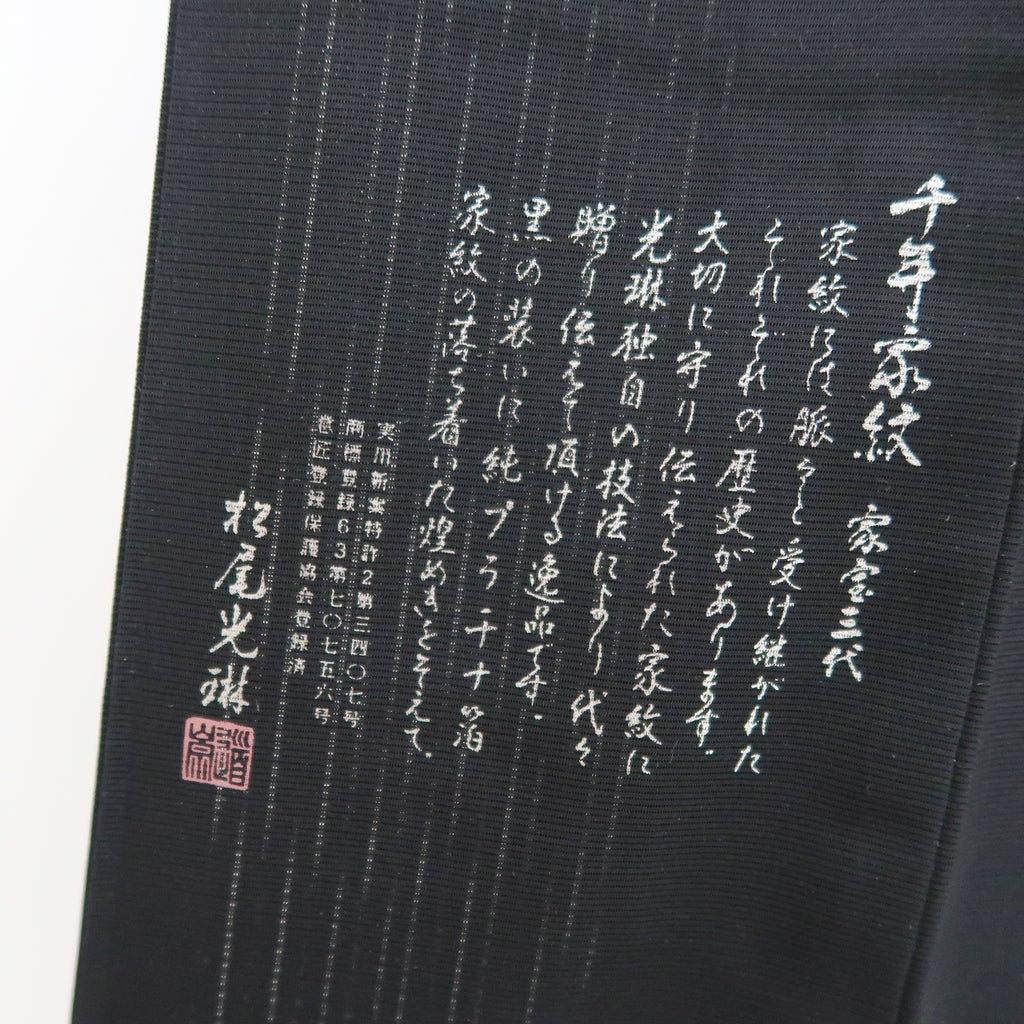 千年家紋 家宝三代
家紋には脈々と受け継がれた
それぞれの歴史があります。
大切に守り伝えられた家紋に
光琳独自の技法により代々
贈り伝えて頂ける逸品です。
黒の装いに純プラチナ箔
家紋の落ち着いた煌めきをそえて。
実用新案特許2第三四〇七号
商標登録63第七〇七五六号
意匠登録保護協会登録済
松尾光琳